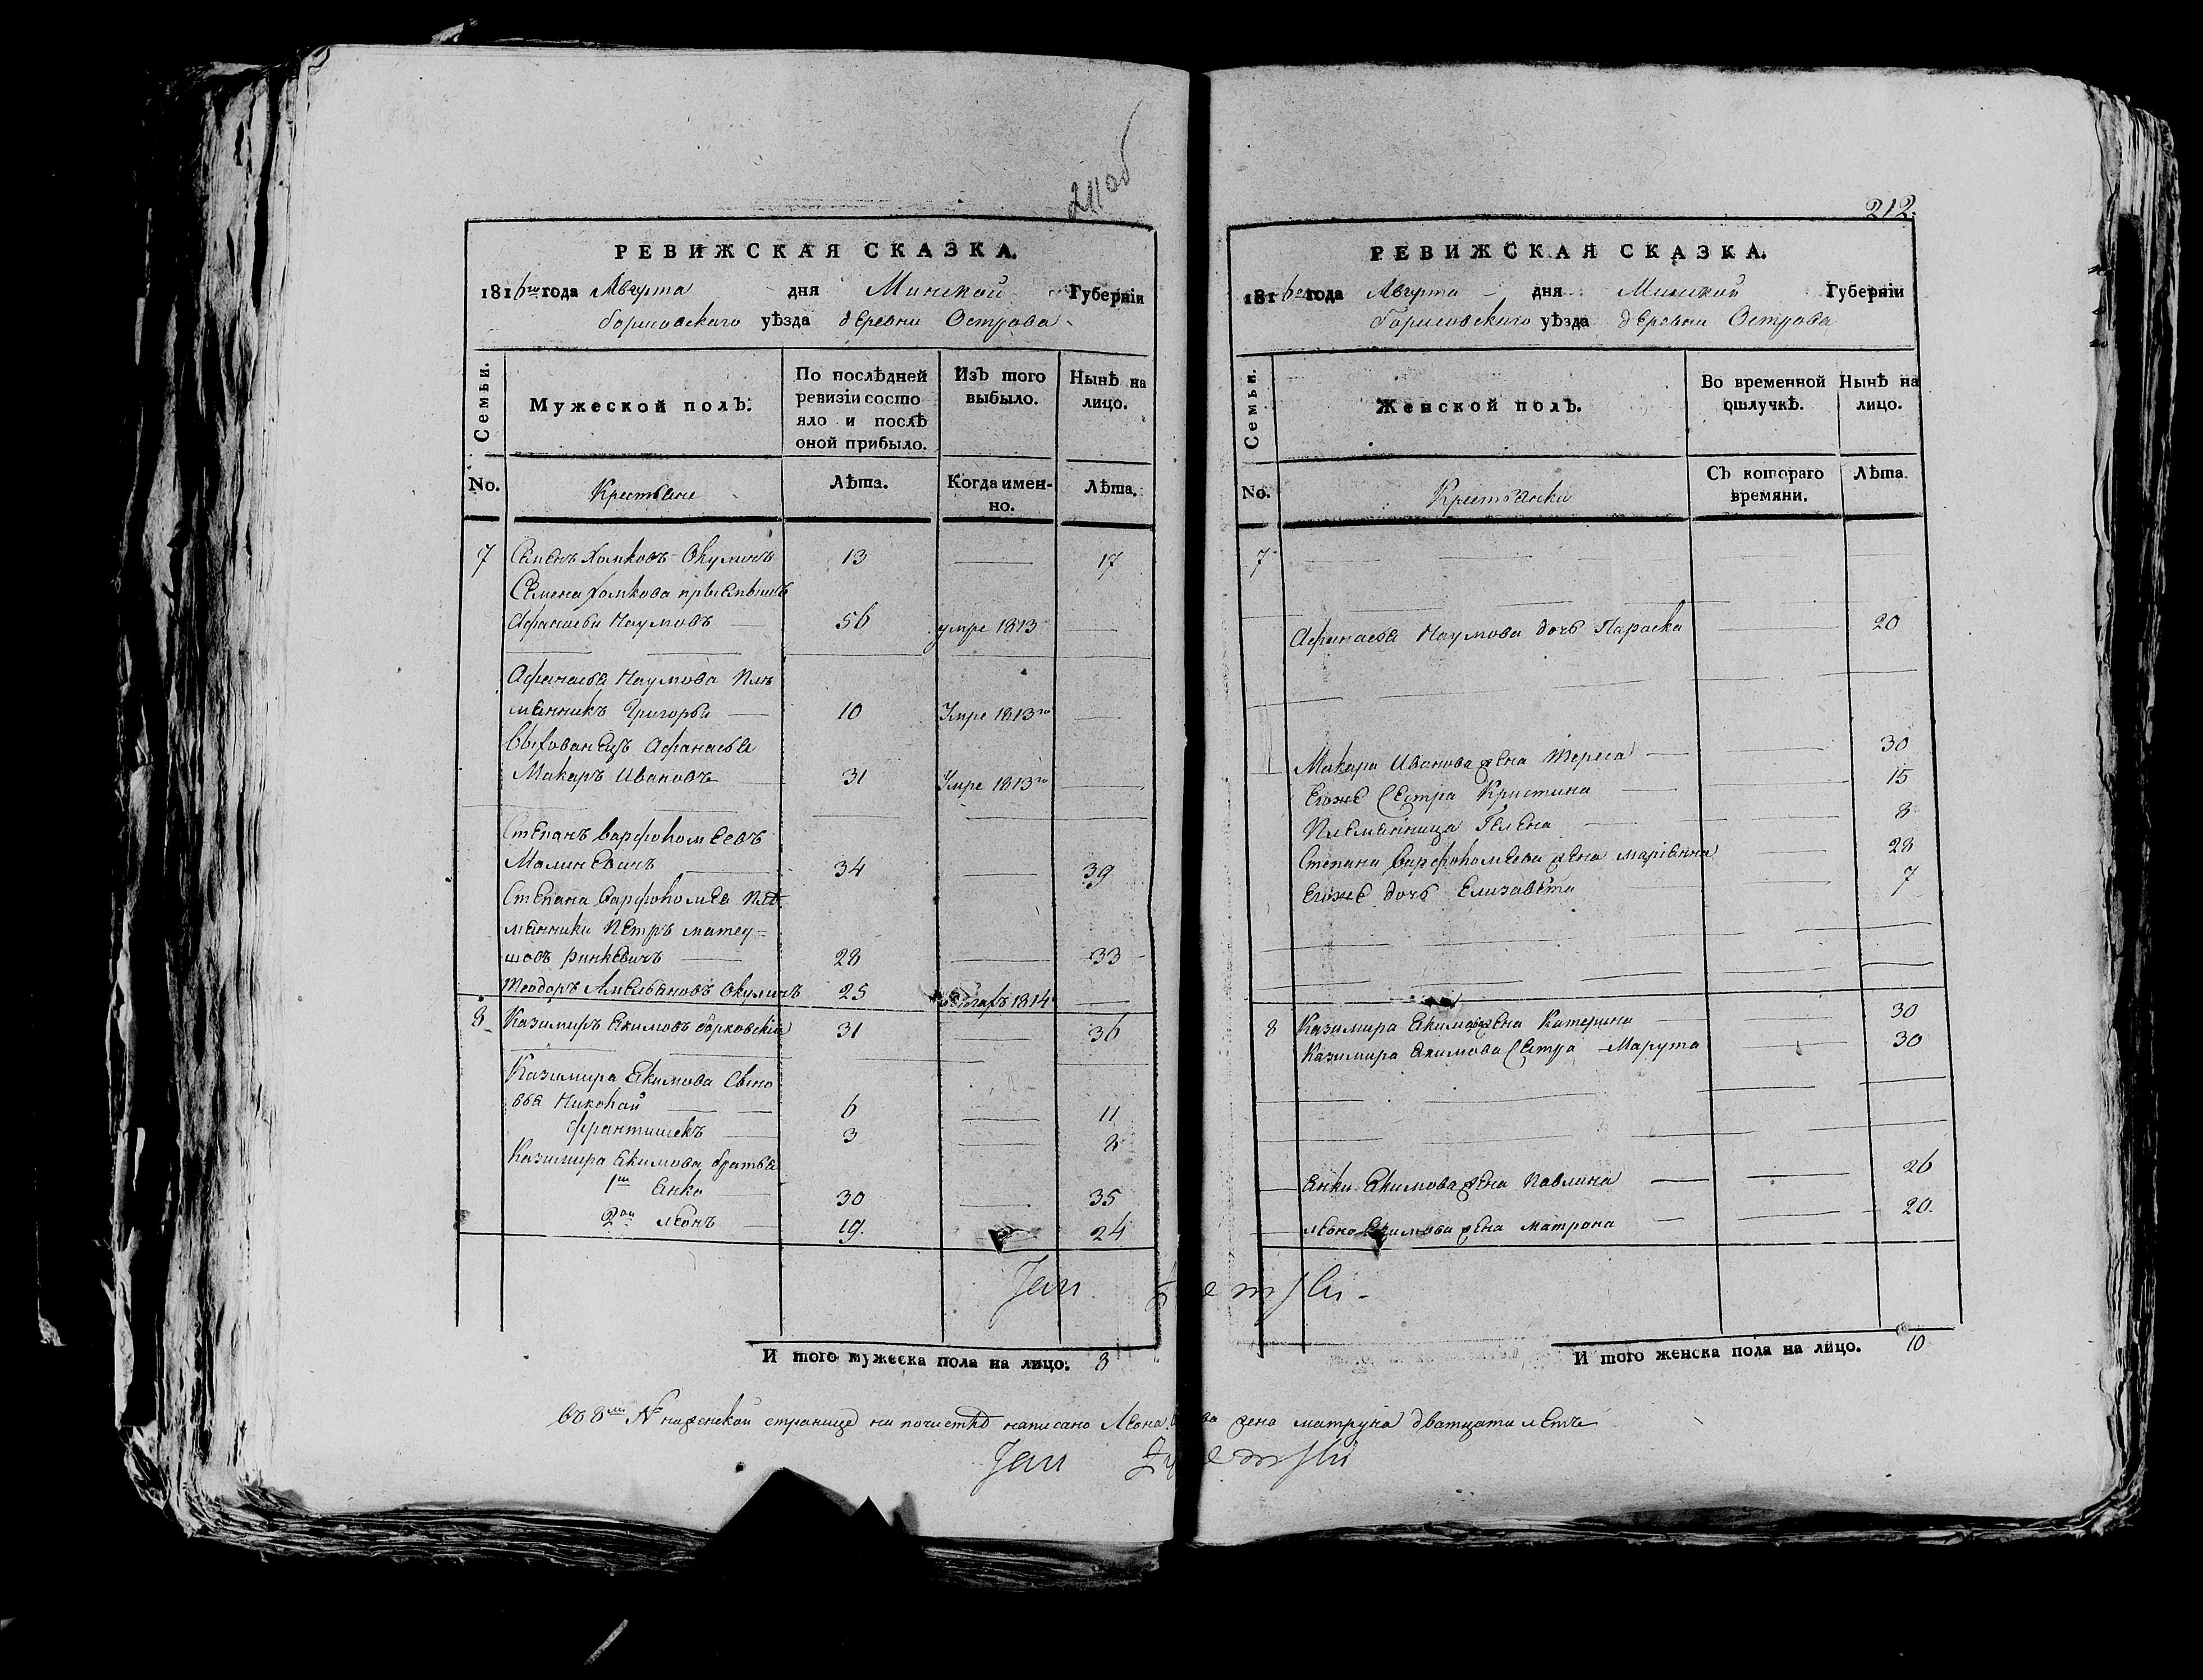 211об
РЕВИЖСКАЯ СКАЗКА.
1816го года Августа дня Минской Губерніи
Борисовскаго уѣзда деревни Острова
Семьи.
Мужеской полъ.
По послѣдней ревизіи состояло и послѣ оной прибыло.
Изъ того выбыло.
Нынѣ на лицо.
No.
Крестьяне
Лѣта.
Когда именно.
Лѣта.
7 Семенъ Хомковъ Окуличъ 13 — 17
Семена Хомкова пріемышъ
Афанасьи Наумовъ 56 умре 1813
Афанасья Наумова пле
мянникъ Григорьи — 10 Умре 1813го
Выхованецъ Афанасья
Макаръ Ивановъ 31 Умре 1813го
Степанъ Варфоломеевъ
Малиневичъ 34 — 39
Степана Варфоломея пле
мянники Петръ матеу=
шовъ ринкевичъ — 28 — 33
Теодоръ Амельяновъ Окуличъ 25 1814
8 Казимиръ Якимовъ борковскій 31 — 36
Казимира Якимова сыно
вья Николай 6 — 11
франтишекъ 3 — 8
Казимира Якимова братья
1й Янко 30 — 35
2ой Леонъ 19. 24
Jan
И того мужеска пола на лицо. 8
212.
РЕВИЖСКАЯ СКАЗКА.
1816го года Августа дня Минской Губерніи
Борисовскаго уѣзда деревни Острова
Семьи.
Женской полъ.
Во временной отлучкѣ.
Нынѣ на лицо.
No.
Крестьянки
Съ котораго времяни.
Лѣта.
7
Афанасья Наумова дочь Параска 20
Макара Иванова жена Тереса 30
Егоже Сестра Кристина 15
Племянница Гелена 8
Степана Варфоломеева жена маріанна 28
Егоже дочь Елизавета 7
8 Казимира Якимова жена Катерина 30
Казимира Якимова Сестра Марута 30
Янки Якимова жена Павлина 26
Леона Якимова жена матрона 20.
И того женска пола на лицо. 10
въ 8мъ № на женской странице на почистке написано Леона жена матруна дватцати летъ
Jan